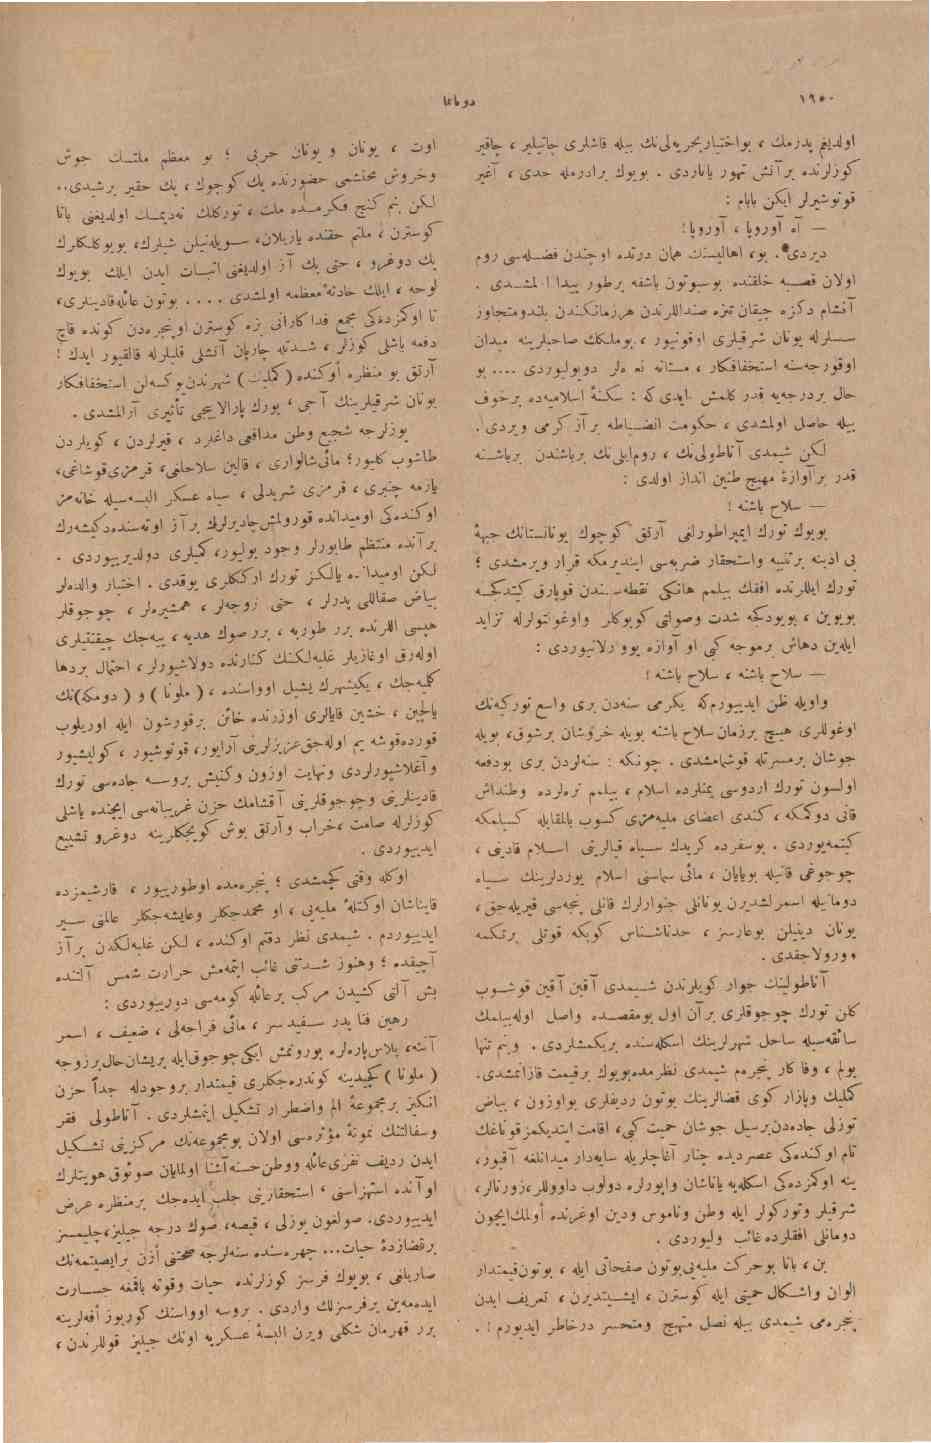 ١٩٥٠
دونانما
اولديغم پدرمك ، بواختيار بحريه‌لى‌نك بيله قاشلرى چاتيلير ، چاقير
كوزلرنده بر آتش تهور يانلاردى . بويوك برادرمله جدى ، آغير
قونوشيرلر ايكن بابام :
— آه آوروپا ، آوروپا !
ديردى . بو ، اهاليسنك همان درتده اوچندن فضله‌سى روم
اولان قصبه خلقنده بوسبوتون باشقه برطور پيدا اولمشدى .
آقشام دكزه چيقان تنزه صنداللرندن هرزمانكندن بلندومتجاوز
سسلرله يونان شرقيلرى اوقونيور ، بوملكك صاحبلرينه ميدان
اوقورجه‌سنه استخفافكار ، مستانه نعره‌لر دويوليوردى .... بو
حال بردرجه‌يه قدر كلمش ايدى‌كه : سكنهٔ اسلاميه‌ده برخوف
بيله حاصل اولمشدى ، حكومت انضباطه بر آز كرمى ويردى .
لكن شيمدى آناطولى‌نك ، روم‌ايلى‌نك برباشندن برباشنه
قدر بر آوازهٔ مهيج طنين انداز اولدى :
— سلاح باشنه !
بويوك تورك ايمپراطورلغى آرتق كوچوك يونانستانك جبههٔ
بى ادبنه برتنبيه واستحقار ضربه‌سى اينديرمكه قرار ويرمشدى ؛
تورك ايللرنده افقك بيلمم هانكى نقطه‌سندن قوپارق كيتدكجه
بويوين ، بويودكجه شدت وصولتى كوبوكلر واوغونتولرله تزايد
ايله‌ين دهاش برموجه كبى او آوازه يووارلانيوردى :
— سلاح باشنه ، سلاح باشنه !
واويله ظن ايدييورم‌كه يكرمى سنه‌دن برى واسع توركيه‌نك
اوغوللرى هيچ برزمان سلاح باشنه بويله خروشان برشوق ، بويله
جوشان برمسرتله قوشمامشدى . چونكه : سنه‌لردن برى بودفعه
اولسون تورك اردوسى يمنلرده اسلام ، بيلمم نره‌لرده وطنداش
قانى دوكمكه ، كندى اعضاى مليه‌مزى كسوب بالمقابله كسيلمكه
كيتمه‌يوردى . بوسفرده كريدك سياه قيالرينى اسلام قادينى ،
چوجوغى قانيله بويايان ، مائى سماسنى اسلام يوردلرينك سياه
دومانيله اسمرلشديرن يونانلى جنوارلرك قانلى پنجه‌سى قيريله‌جق ،
يونان دينيلن بوعارسز ، حدناشناس كوپكه قوتلى برتكمه
وورولاجقدى .
آناطولينك جوار كويلرندن شيمدى آقين آقين قوشوب
كلن تورك چوجوقلرى بر آن اول بومقصده واصل اوله‌بيلمك
سائقه‌سيله ساحل شهرلرينك اسكله‌سنده بريكمشلردى . وبنم تنها
بولم ، وفا كار پنجره‌م شيمدى نظرمده‌بويوك برقيمت قازانمشدى .
كمليك وپازار كوى قضالرينك بوتون رديفلرى بواوزون ، بياض
توزلى جاده‌دن‌برسيل جوشان حميت كبى ، اقامت ايتديكمز قوناغك
تام اوكنده‌كى عصرديده چنار آغاجلريله سايه‌دار ميدانلغه آقيور ،
ينه اوكمزده‌كى اسكله‌يه ياناشان واپورلره دولوب داووللر ، زورنالر ،
شرقيلر وتوركولر ايله وطن وناموس ودين اوغرنده أولمك‌ايچون
دومانلى افقلرده غائب وليوردى .
بن ، بانا بوحركت مليه‌يى‌بوتون صفحاتى ايله ، بوتون‌قيمتدار
الوان واشكال حميتى ايله كوسترن ، ايشيتديرن ، تعريف ايدن
پنجره‌مى شيمدى بيله نصل متهيج ومتحسر درخاطر ايديورم ! .
اوت ، يونان و يونان حربى ؛ بو معظم ملتك جوش
وخروش محتشمى حضورنده پك كوچوك ، پك حقير برشيدى..
لكن بنم كنج فكرمده ملت ، توركلك نه‌ديمك اولديغنى بانا
كوسترن ، ملتم حقنده يازيلان ، سويله‌نيلن شيلرك ، بويوكلكلرك
پك دوغرو ، حتى پك آز اولديغنى اثبات ايدن ايلك بويوك
لوحه ، ايلك حادثهٔ معظمه اولمشدى .... بوتون عائله‌قادينلرى ،
تا اوكمزده‌كى مجمع فداكارانى بزه كوسترن اوپنجره‌دن كونده قاچ
دفعه ياشلى كوزلر ، شدتله چارپان آتشلى قلبلرله قالقيور ايدك !
آرتق بو منظره أوكنده (كمليك) شهرندن‌يوكسه‌لن استخفافكار
يونان شرقيلرينك آجى ، يورك پارالاييجى تأثيرى آزالمشدى .
يوزلرجه شجيع وطن مدافعى داغلرد ، قيرلردن ، كويلردن
طاشوب كليور ؛ مائى‌شالوارى ، قالين سلاحلغى ، قرمزى‌قوشاغى ،
يازمه چنبرى ، قرمزى شريدلى ، سياه عسكر البسه‌سيله خانه‌مز
اوكنده‌كى اوميدانده قورولمش‌چاديرلرك بر آز اوته‌سنده‌دكيشه‌رك
بر آنده منتظم طابورلر وجود بوليور ، كميلرى دولديرييوردى .
لكن اوميدانده يالكز تورك ارككلرى يوقدى . اختيار والده‌لر
بياض صقاللى پدرلر ، حتى زوجه‌لر ، همشيره‌لر ، چوجوقلر
هپسى اللرنده برر طوربه ، بررصوك هديه ، ييه‌جك چيقينلرى
اوله‌رق اوغازيلر غلبه‌لكنك كنارنده دولاشيورلر ، احتمال بردها
كلميه‌جك ، يكيشهرك يشيل اوواسنده ، ( ملونا ) و ( دومكه)نك
يالچين ، خشين قايالرى اوزرنده خائن برقورشون ايله اوريلوب
قورده‌قوشه يم اوله‌جق‌عزيزلرينى آرايور ، قونوشيور ، كوليشيور
و آغلاشيورلردى ونهايت اوزون وكنيش بروسه جاده‌سى تورك
قادينلرينى وچوجوقلرينى آقشامك حزن غريبانه‌سى ايچنده ياشلى
كوزلرله صامت ، خراب و آرتق بوش كويجكلرينه دوغرو تشييع
ايدييوردى .
اوكله وقتى كچمشدى ؛ پنجره‌مده اوطورييور ، قارشيمزده
قايناشان اوكتلهٔ مليه‌يى ، او محمدجكلر وعايشه‌جكلر عالمنى سير
ايدييوردم . شيمدى نظر دقتم اوكنده ، لكن غلبه‌لكدن بر آز
آچيقده ؛ وهنوز شدتنى غائب ايتمه‌مش حرارت شمس آلتنده
بش آلتى كشيدن مركب برعائله كومه‌سى دورييوردى :
رهين فنا پدر سفيدسر ، مائى فراجه‌لى ، ضعيف ، اسمر
آننه ، پلاس‌پاره‌لره بورونمش ايكى‌چوجوق‌ايله پريشان‌حال‌برزوجه
( ملونا ) كچيدينه كوندره‌جكلرى قيمتدار بروجودله جداً حزن
انكيز برمجموعهٔ الم واضطرار تشكيل ايتمشلردى . آناطولى فقر
وسفالتنك نمونهٔ مؤثره‌سى اولان بومجموعه‌نك مركزينى تشكيل
ايدن رديف نفرى‌عائله ووطن‌حسنه‌آشنا اولمايان صوئوق هويتلرك
اوآنده استهزاسنى ، استحقارينى جلب ايده‌جك برمنظره عرض
ايدييوردى . صولغون يوزلى ، قيصه ، صوك درجه جيليز ، چليمسز
برقضازدهٔ حيات... چهره‌سنده سنه‌لرجه صحتنى أزن برايصيتمه‌نك
صاريلغى ، بويوك فرسز كوزلرنده حيات وقوته باقمغه جسارت
ايده‌مه‌ين برفرسزلك واردى . بروسه اوواسنك كوربوز أفه‌لرينه
برر قهرمان شكلى ويرن البسهٔ عسكريه اونك جيليز قوللرندن ،